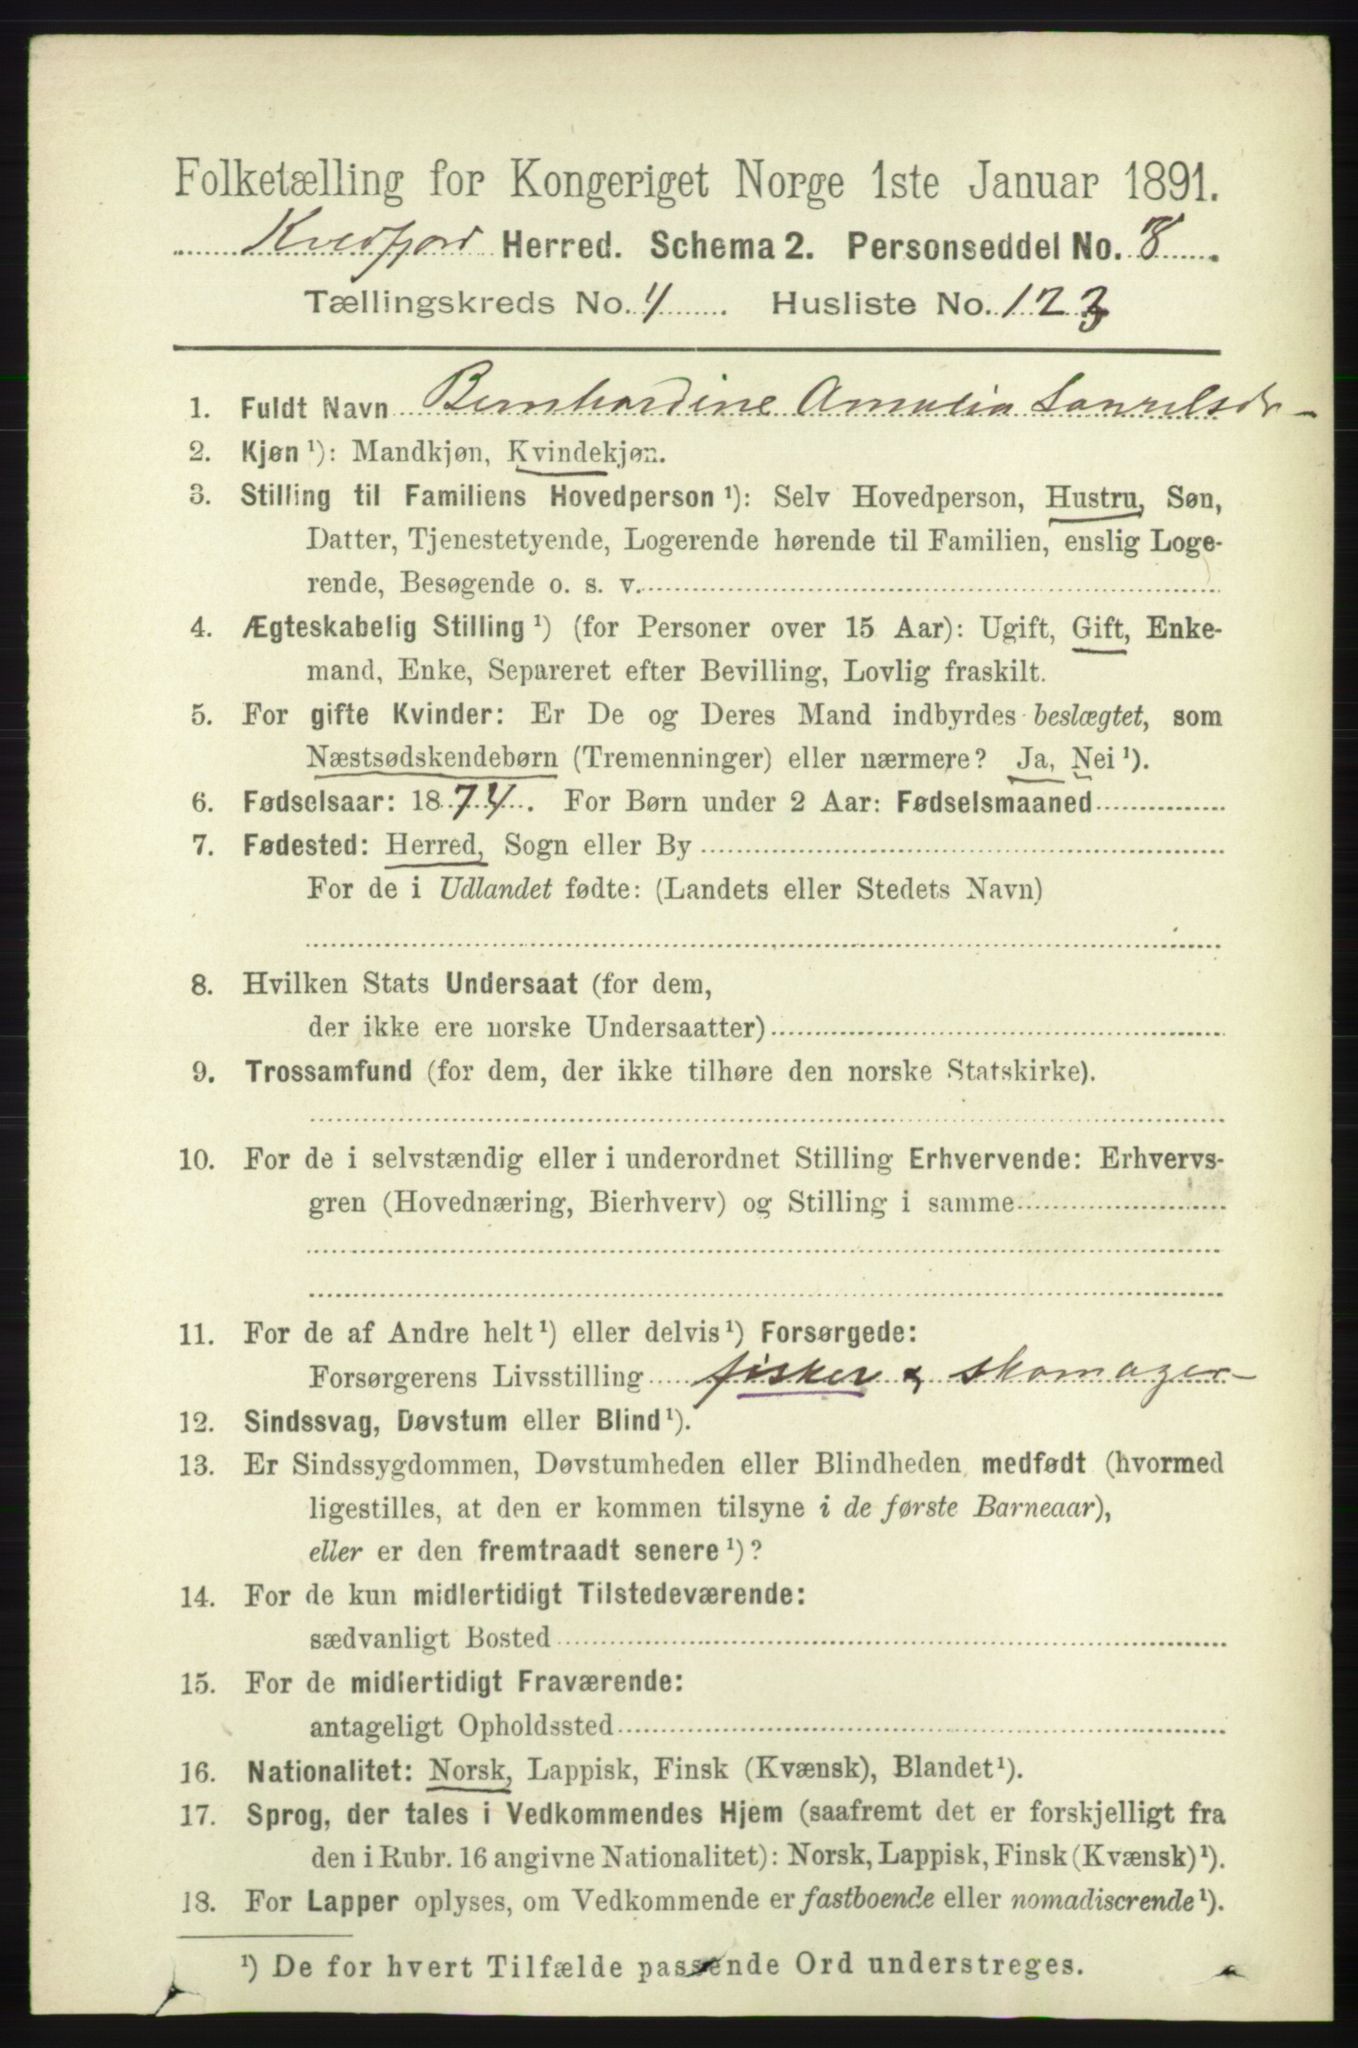 Folketælling for Kongeriget Norge 1ste Januar 1891.
Kvedfjord Herred. Schema 2. Personseddel No. 8.
Tællingskreds No. 4. Husliste No. 123
1. Fuldt Navn Bernhardine Amalia Laurilsdr
2. Kjøn ¹): Mandkjøn, Kvindekjøn.
3. Stilling til Familiens Hovedperson ¹): Selv Hovedperson, Hustru, Søn,
Datter, Tjenestetyende, Logerende hørende til Familien, enslig Loge-
rende, Besøgende o. s. v.
4. Ægteskabelig Stilling ¹) (for Personer over 15 Aar): Ugift, Gift, Enke-
mand, Enke, Separeret efter Bevilling, Lovlig fraskilt.
5. For gifte Kvinder: Er De og Deres Mand indbyrdes beslægtet, som
Næstsødskendebørn (Tremenninger) eller nærmere? Ja, Nei ¹).
6. Fødselsaar: 1874. For Børn under 2 Aar: Fødselsmaaned
7. Fødested: Herred, Sogn eller By
For de i Udlandet fødte: (Landets eller Stedets Navn)
8. Hvilken Stats Undersaat (for dem,
der ikke ere norske Undersaatter)
9. Trossamfund (for dem, der ikke tilhøre den norske Statskirke).
10. For de i selvstændig eller i underordnet Stilling Erhvervende: Erhvervs-
gren (Hovednæring, Bierhverv) og Stilling i samme
11. For de af Andre helt ¹) eller delvis ¹) Forsørgede:
Forsørgerens Livsstilling fisker & skomager
12. Sindssvag, Døvstum eller Blind ¹).
13. Er Sindssygdommen, Døvstumheden eller Blindheden medfødt (hvormed
ligestilles, at den er kommen tilsyne i de første Barneaar),
eller er den fremtraadt senere ¹)?
14. For de kun midlertidigt Tilstedeværende:
sædvanligt Bosted
15. For de midlertidigt Fraværende:
antageligt Opholdssted
16. Nationalitet: Norsk, Lappisk, Finsk (Kvænsk), Blandet ¹).
17. Sprog, der tales i Vedkommendes Hjem (saafremt det er forskjelligt fra
den i Rubr. 16 angivne Nationalitet): Norsk, Lappisk, Finsk (Kvænsk) ¹).
18. For Lapper oplyses, om Vedkommende er fastboende eller nomadiserende ¹).
¹) De for hvert Tilfælde passende Ord understreges.